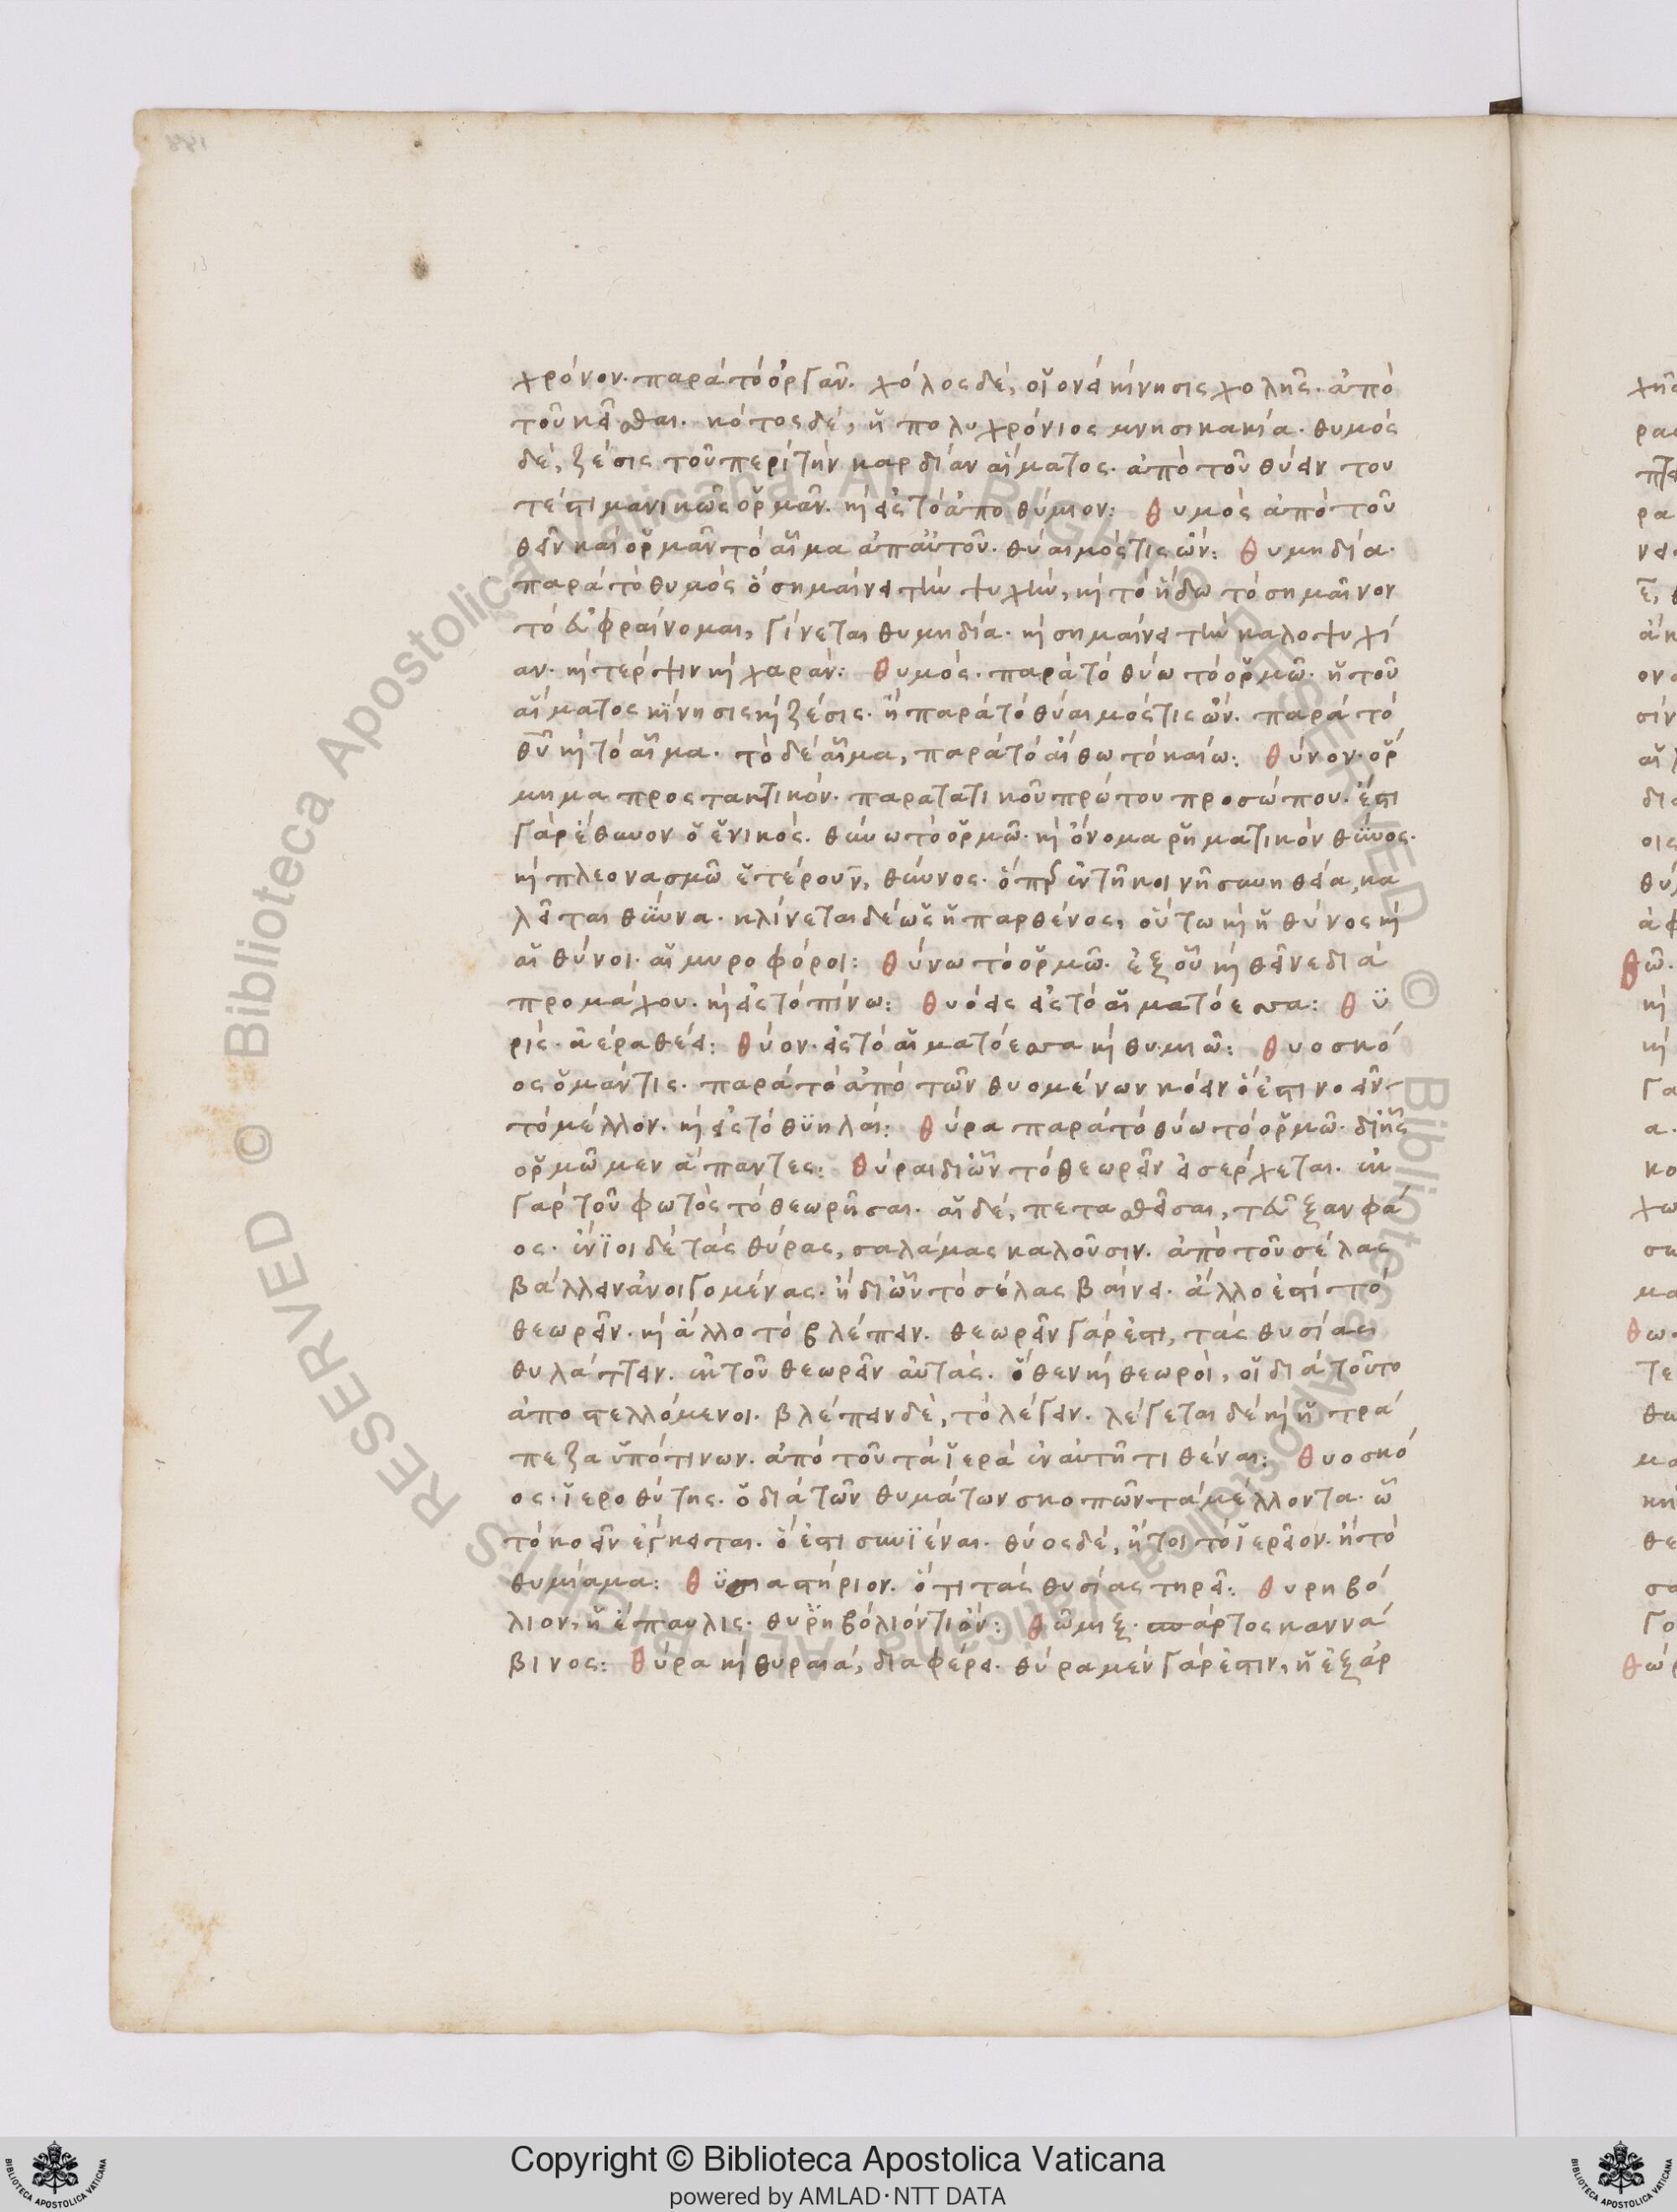 χρόνον. παρὰ τὸ ὀργᾶν. χόλος δέ, οἱονεὶ κίνησις χολῆς. ἀπὸ
τοῦ κεῖσθαι. κότος δέ, ἡ πολυχρόνιος μνησικακία. θυμὸς
δέ, ζέσις τοῦ περὶ τὴν καρδίαν αἵματος. ἀπὸ τοῦ θύειν του
τέστι μανικῶς ὁρμᾶν. κὶ εἰς τὸ ἀποθύμιον: θυμὸς ἀπὸ τοῦ
θεῖν καὶ ὁρμᾶν τὸ αἷμα ἀπ αὐτοῦ. θύαιμός τις ὤν: θυμηδία.
παρὰ τὸ θυμὸς ὃ σημαίνει τὴν ψυχὴν, κὶ τὸ ἥδω τὸ σημαῖνον
τὸ εὐφραίνομαι, γίνεται θυμηδία. κὶ σημαίνει τὴν καλοψυχί
αν. κὶ τέρψιν κὶ χαράν: θυμός. παρὰ τὸ θύω τὸ ὁρμῶ. ἡ τοῦ
αἵματος κίνησις κὶ ζέσις. ἢ παρὰ τὸ θύαιμός τις ὤν. παρὰ τὸ
θῦ κὶ τὸ αἷμα. τὸ δὲ αἷμα, παρὰ τὸ αἴθω τὸ καίω: θύνον. ὅρ
μημα προστακτικόν. παρατατικοῦ πρώτου προσώπου. ἔστι
γὰρ ἔθυνον ὁ ἑνικός. θύνω τὸ ὁρμῶ. κὶ ὄνομα ῥηματικὸν θύνος.
κὶ πλεονασμῶ ἑτέρου ν, θύννος. ὅπερ ἐν τῆ κοινῆ συνηθεία, κα
λεῖται θύννα. κλίνεται δὲ ὡς ἡ παρθένος, οὕτω κὶ ἡ θύνος κὶ
αἱ θύνοι. αἱ μυροφόροι: θύνω τὸ ὁρμῶ. ἐξ οὗ κὶ θῦνε διὰ
προμάχου. κὶ εἰς τὸ πίνω: θυόεις εἰς τὸ αἱματόεσσα: θυ
ρίς. ἀέρα θέει: θύον. εἰς τὸ αἱματόεσσα κὶ θυμιῶ: θυοσκό
ος ὁ μάντις. παρὰ τὸ ἀπὸ τῶν θυομένων κόειν ὅ ἐστι νοεῖν
τὸ μέλλον. κὶ εἰς τὸ θυηλαί: θύρα παρὰ τὸ θύω τὸ ὁρμῶ. δι ἧς
ὁρμῶμεν ἅπαντες: θύραι δι ὧν τὸ θεωρεῖν εἰσέρχεται. ἐκ
γὰρ τοῦ φωτὸς τὸ θεωρῆσαι. αἱ δέ, πετασθεῖσαι, τεῦξαν φά
ος. ἔνιοι δὲ τὰς θύρας, σαλάμας καλοῦσιν. ἀπὸ τοῦ σέλας
βάλλειν ἀνοιγομένας. ἢ δι ὧν τὸ σέλας βαίνει. ἄλλο ἐστὶ τὸ
θεωρεῖν. κὶ ἄλλο τὸ βλέπειν. θεωρεῖν γάρ ἐστι, τὰς θυσίας
θυλάττειν. ἐκ τοῦ θεωρεῖν αὐτάς. ὅθεν κὶ θεωροὶ, οἱ διὰ τοῦτο
ἀποστελλόμενοι. βλέπειν δὲ, τὸ λέγειν. λέγεται δὲ κὶ ἡ τρά
πεζα ὑπό τινων. ἀπὸ τοῦ τὰ ἱερὰ ἐν αὐτῆ τιθέναι: θυοσκό
ος. ἱεροθύτης. ὁ διὰ τῶν θυμάτων σκοπῶν τὰ μέλλοντα. ὧ
τὸ κοεῖν ἔγκειται. ὅ ἐστι συνϊέναι. θύος δέ, ἤτοι τὸ ἱερεῖον. ἢ τὸ
θυμίαμα: θυσιαστήριον. ὅτι τὰς θυσίας τηρεῖ: θυρηβό
λιον, ἡ ἔπαυλις. θυρηβόλιόν τι ὄν: θῶμιξ. σπάρτος καννά
βινος: θύρα κὶ θυραιά, διαφέρει. θύρα μὲν γάρ ἐστιν, ἡ ἐξαρ
Copyright © Biblioteca Apostolica Vaticana
powered by AMLAD·NTT DATA